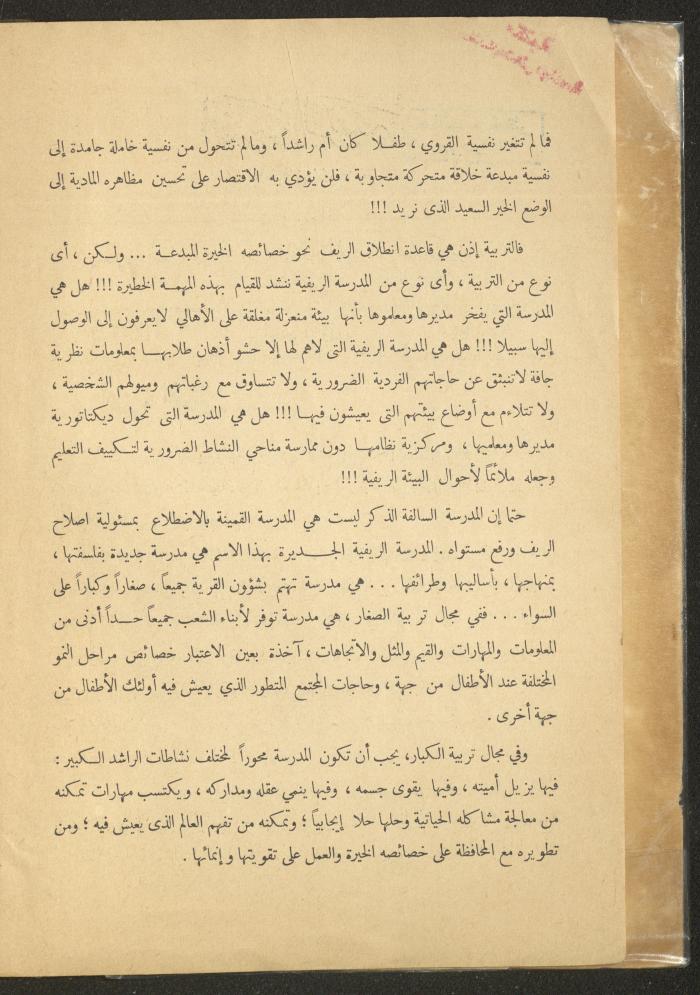 فما لم تتغير نفسية القروي ، طفلا كان أم راشداً ، وما لم تتحول من نفسية خاملة جامدة إلى
نفسية مبدعة خلاقة متحركة متجاوبة ، فلن يؤدي به الاقتصار على تحسين مظاهره المادية إلى
الوضع الخير السعيد الذى نريد !!!
فالتربية إذن هي قاعدة انطلاق الريف نحو خصائصه الخيرة المبدعة ... ولكن ، أى
نوع من التربية ، وأى نوع من المدرسة الريفية ننشد للقيام بهذه المهمة الخطيرة !!! هل هي
المدرسة التي يفخر مديرها ومعلموها بأنها بيئة منعزلة مغلقة على الأهالي لايعرفون إلى الوصول
إليها سبيلا !!! هل هي المدرسة الريفية التى لاهم لها إلا حشو أذهان طلابها بمعلومات نظرية
جافة لاتنبثق عن حاجاتهم الفردية الضرورية ، ولا تتساوق مع رغباتهم وميولهم الشخصية ،
ولا تتلاءم مع أوضاع بيئتهم التى يعيشون فيها !!! هل هي المدرسة التى تحول ديكتاتورية
مديرها ومعلميها ، ومركزية نظامها دون ممارسة مناحي النشاط الضرورية لتكييف التعليم
وجعله ملائماً لأحوال البيئة الريفية !!!
حتما إن المدرسة السالفة الذكر ليست هي المدرسة القمينة بالاضطلاع بمسئولية اصلاح
الريف ورفع مستواه . المدرسة الريفية الجديرة بهذا الاسم هي مدرسة جديدة بفلسفتها ،
بمنهاجها ، بأساليبها وطرائقها ... هي مدرسة تهتم بشؤون القرية جميعاً ، صغاراً وكباراً على
السواء ... ففي مجال تربية الصغار ، هي مدرسة توفر لأبناء الشعب جميعاً حداً أدنى من
المعلومات والمهارات والقيم والمثل والاتجاهات ، آخذة بعين الاعتبار خصائص مراحل النمو
المختلفة عند الأطفال من جهة ، وحاجات المجتمع المتطور الذي يعيش فيه أولئك الأطفال من
جهة أخرى .
وفي مجال تربية الكبار، يجب أن تكون المدرسة محوراً لمختلف نشاطات الراشد الكبير :
فيها يزيل أميته ، وفيها يقوى جسمه ، وفيها ينمي عقله ومداركه ، ويكتسب مهارات تمكنه
من معالجة مشاكله الحياتية وحلها حلا إيجابياً ؛ وتمكنه من تفهم العالم الذى يعيش فيه ؛ ومن
تطويره مع المحافظة على خصائصه الخيرة والعمل على تقويتها وإنمائها .